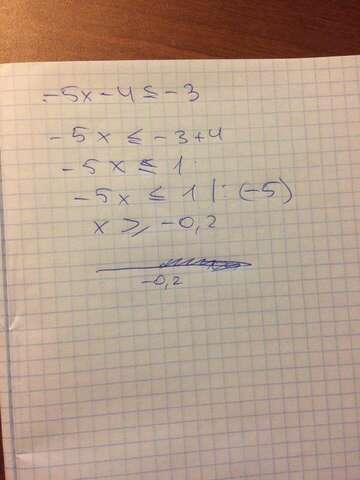 -5x-4≤-3
-5x≤-3+4
-5x≤1
-5x≤1|:(-5)
x≥-0,2
-0,2